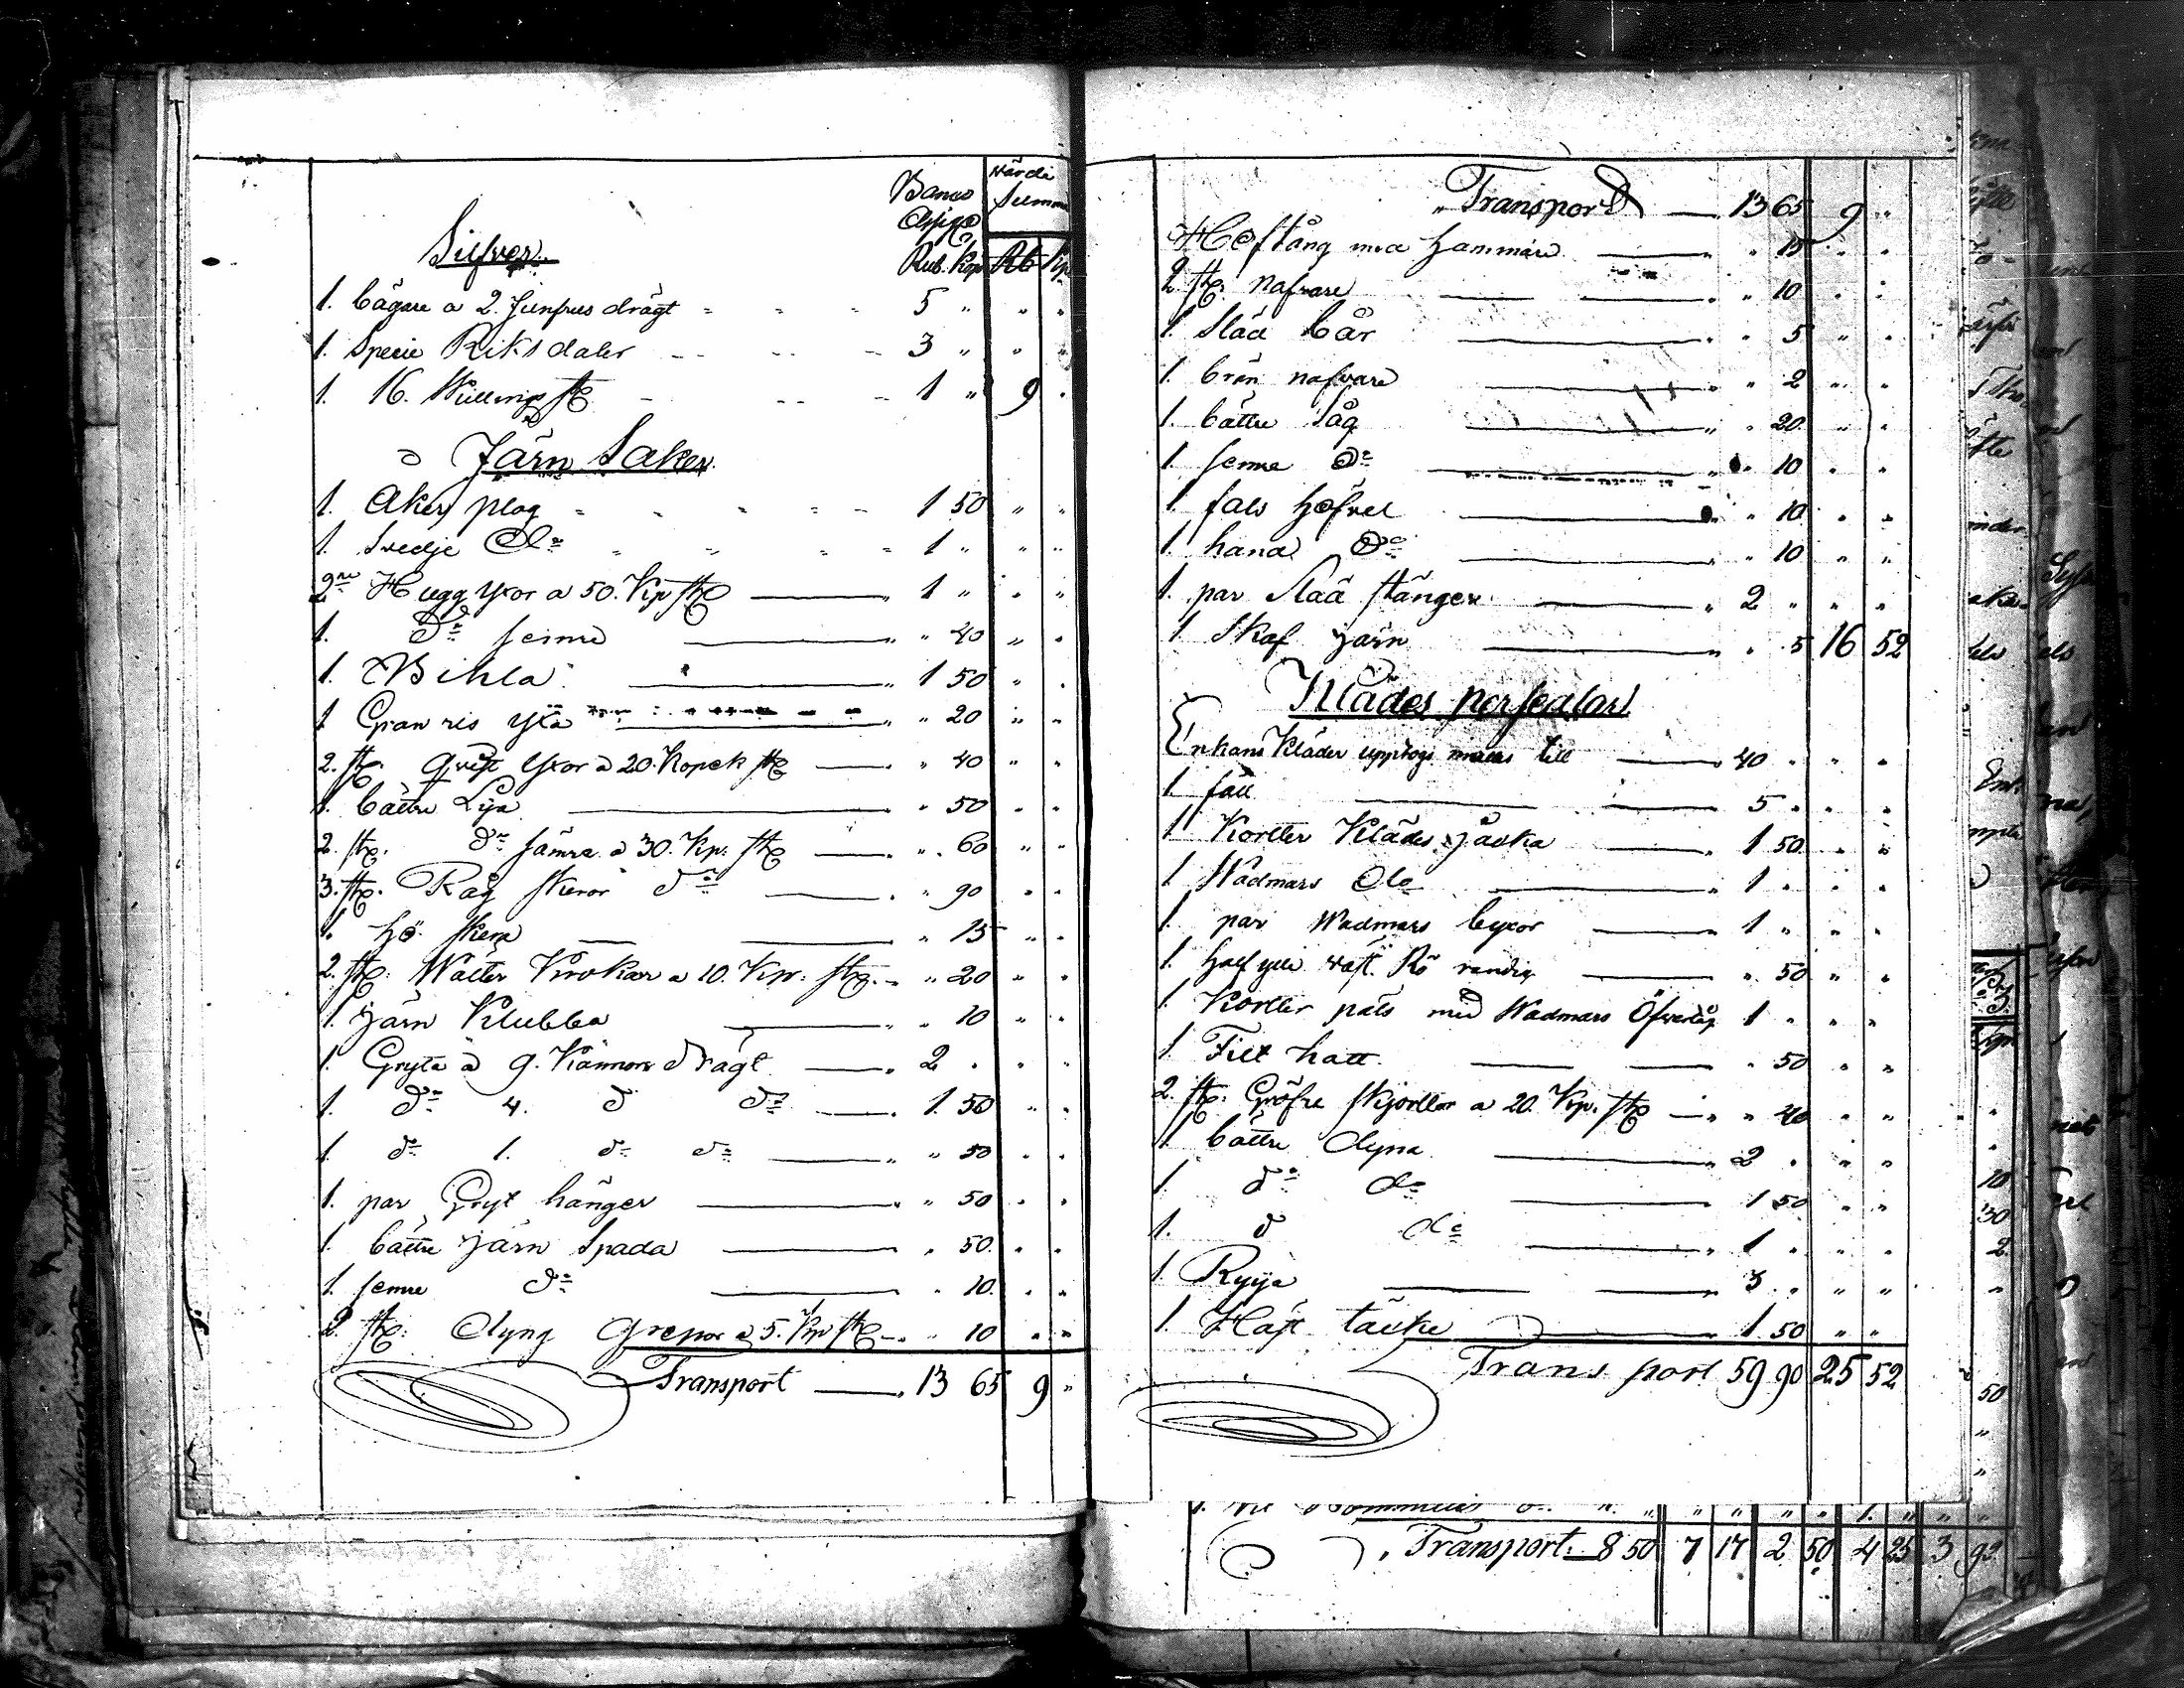 Banco Assign Wärde Summa
Silfver Rub. Kop Rb Kp
1. bägare a 2. Junfrus drägt " " " 5 " " "
1. Specie Riksdaler - - - 3 " " "
1. 16. Skillings st - - - 1 " 9 "
Järn Saker
1. Aker plog " " " " - 1 50 " "
1. Svedje do " " " " 1 " " "
2ne Hugg yxor a 50. Kp st 1 " " "
1. do semre " " 40 " "
1. Bihla " 1 50 " "
1 Gran ris yxa " " 20 " "
2. st. qvist yxor a 20. Kopek st " 40 " "
1. bättre Lija " 50 " "
2. st. do sämre a 30. Kp. st " " 60 " "
3. st. Råg skeror do " " 90 " "
1. hö skera " 15 " "
2. st. Watter Krokar a 10. Kp. st. " " 20 " "
1. järn Klubba " " 10 " "
1. Gryta a 9. Kannors drägt " 2 " " "
1. do 4. d do " 1. 50 " "
1. do 1. do do " " 50 " "
1. par Gryt hänger " " 50 " "
1. bättre järn Spada " 50. " "
1. semre do " 10. " "
2. st. dyng Grepor a 5. Kp st " " 10 " "
Transport " 13 65 9 "
Transport 13 65 9 "
Hoftång med hammare " " 15 " "
2 st. nafvare " " 10 " "
1. Slää bår " " 5 " "
1. brän nafvare " " 2 " "
1. bättre såg " " 20 " "
1. semre do " " 10 " "
1. fals höfvel " " 10 " "
1. hand do " " 10 " "
1. par Slää stänger " 2 " " "
1 Skaf järn " " 5 16 52
Klädes persedlar
Enkans Kläder upptogs till " 40 " " "
1 fäll 5 " " "
1 Kortter Klädes jacka " 1 50 " "
1 Wadmars do " 1 " " "
1. par Wadmars byxor " 1 " " "
1. half ylle väst Rö randig " 50 " "
1. Kortter päls med Wadmars Öfverlag 1 " " "
1 Filt hatt " 50 " "
2. st. Gröfre skjortlar a 20. Kp. st " " 40 " "
1 bättre dyna " 2 " " "
1 do do 1 50 " "
1. d do " 1 " " "
1. Ryya " 3 " " "
1. Häst täcke " 1 50 " "
Transport 59 90 25 52
Transport. 8 50 7 17 2 50 4 25 3